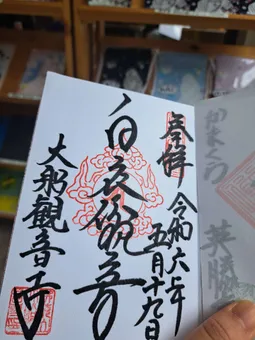 奉拝
令和六年
五月十九日
白衣観音
大船観音寺